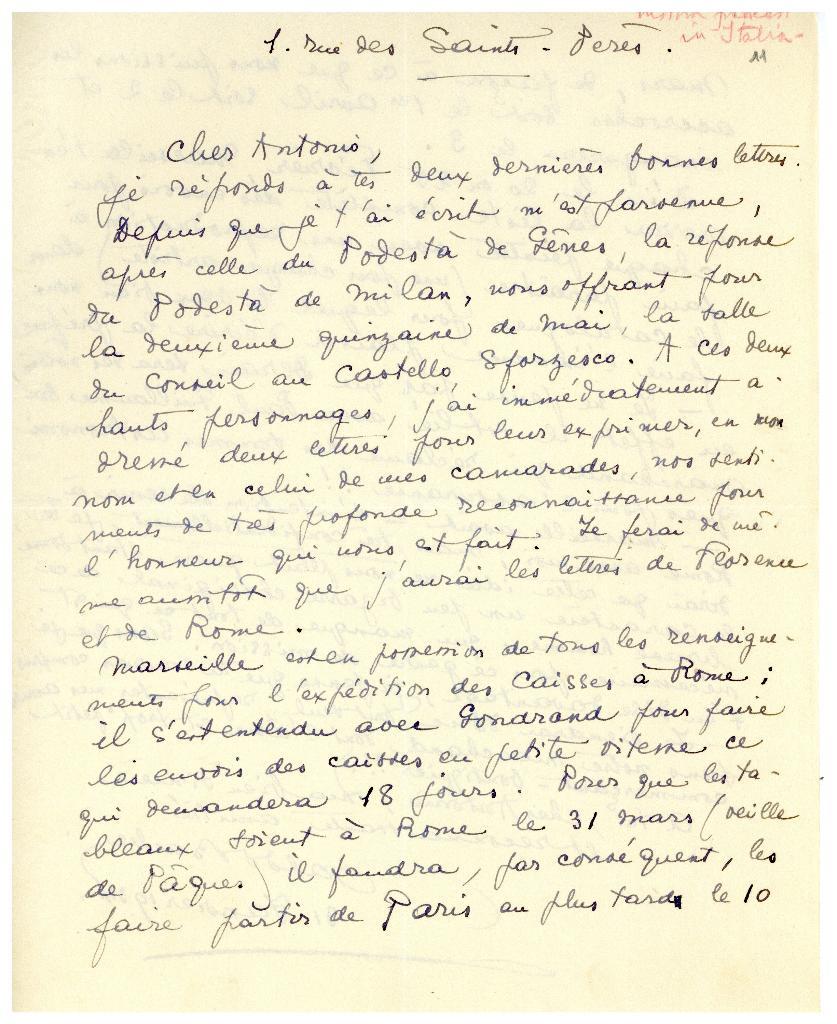 in Italia
11
1. rue des Saints-Peres.
Cher Antonio,
je réponds à tes deux dernières bonnes lettres.
Depuis que je t'ai écrit m'est parvenue,
après celle du Podestà de Gênes, la réponse
du Podestà de Milan, nous offrant pour
la deuxième quinzaine de mai, la salle
du Conseil au Castello Sforzesco. A ces deux
hauts personnages, j'ai immédiatement a-
dressé deux lettres pour leur exprimer, en mon
nom et en celui de mes camarades, nos senti-
ments de très profonde reconnaissance pour
l'honneur qui nous est fait. Je ferai de mê-
me aussitôt que j'aurai les lettres de Florence
et de Rome.
Marseille est en possession de tous les renseigne-
ments pour l'expédition des caisses à Rome ;
il s'est entendu avec Gondrand pour faire
les envois des caisses en petite vitesse ce
qui demandera 18 jours. Pour que les ta-
bleaux soient à Rome le 31 mars (veille
de Pâques) il faudra, par conséquent, les
faire partir de Paris au plus tard le 10